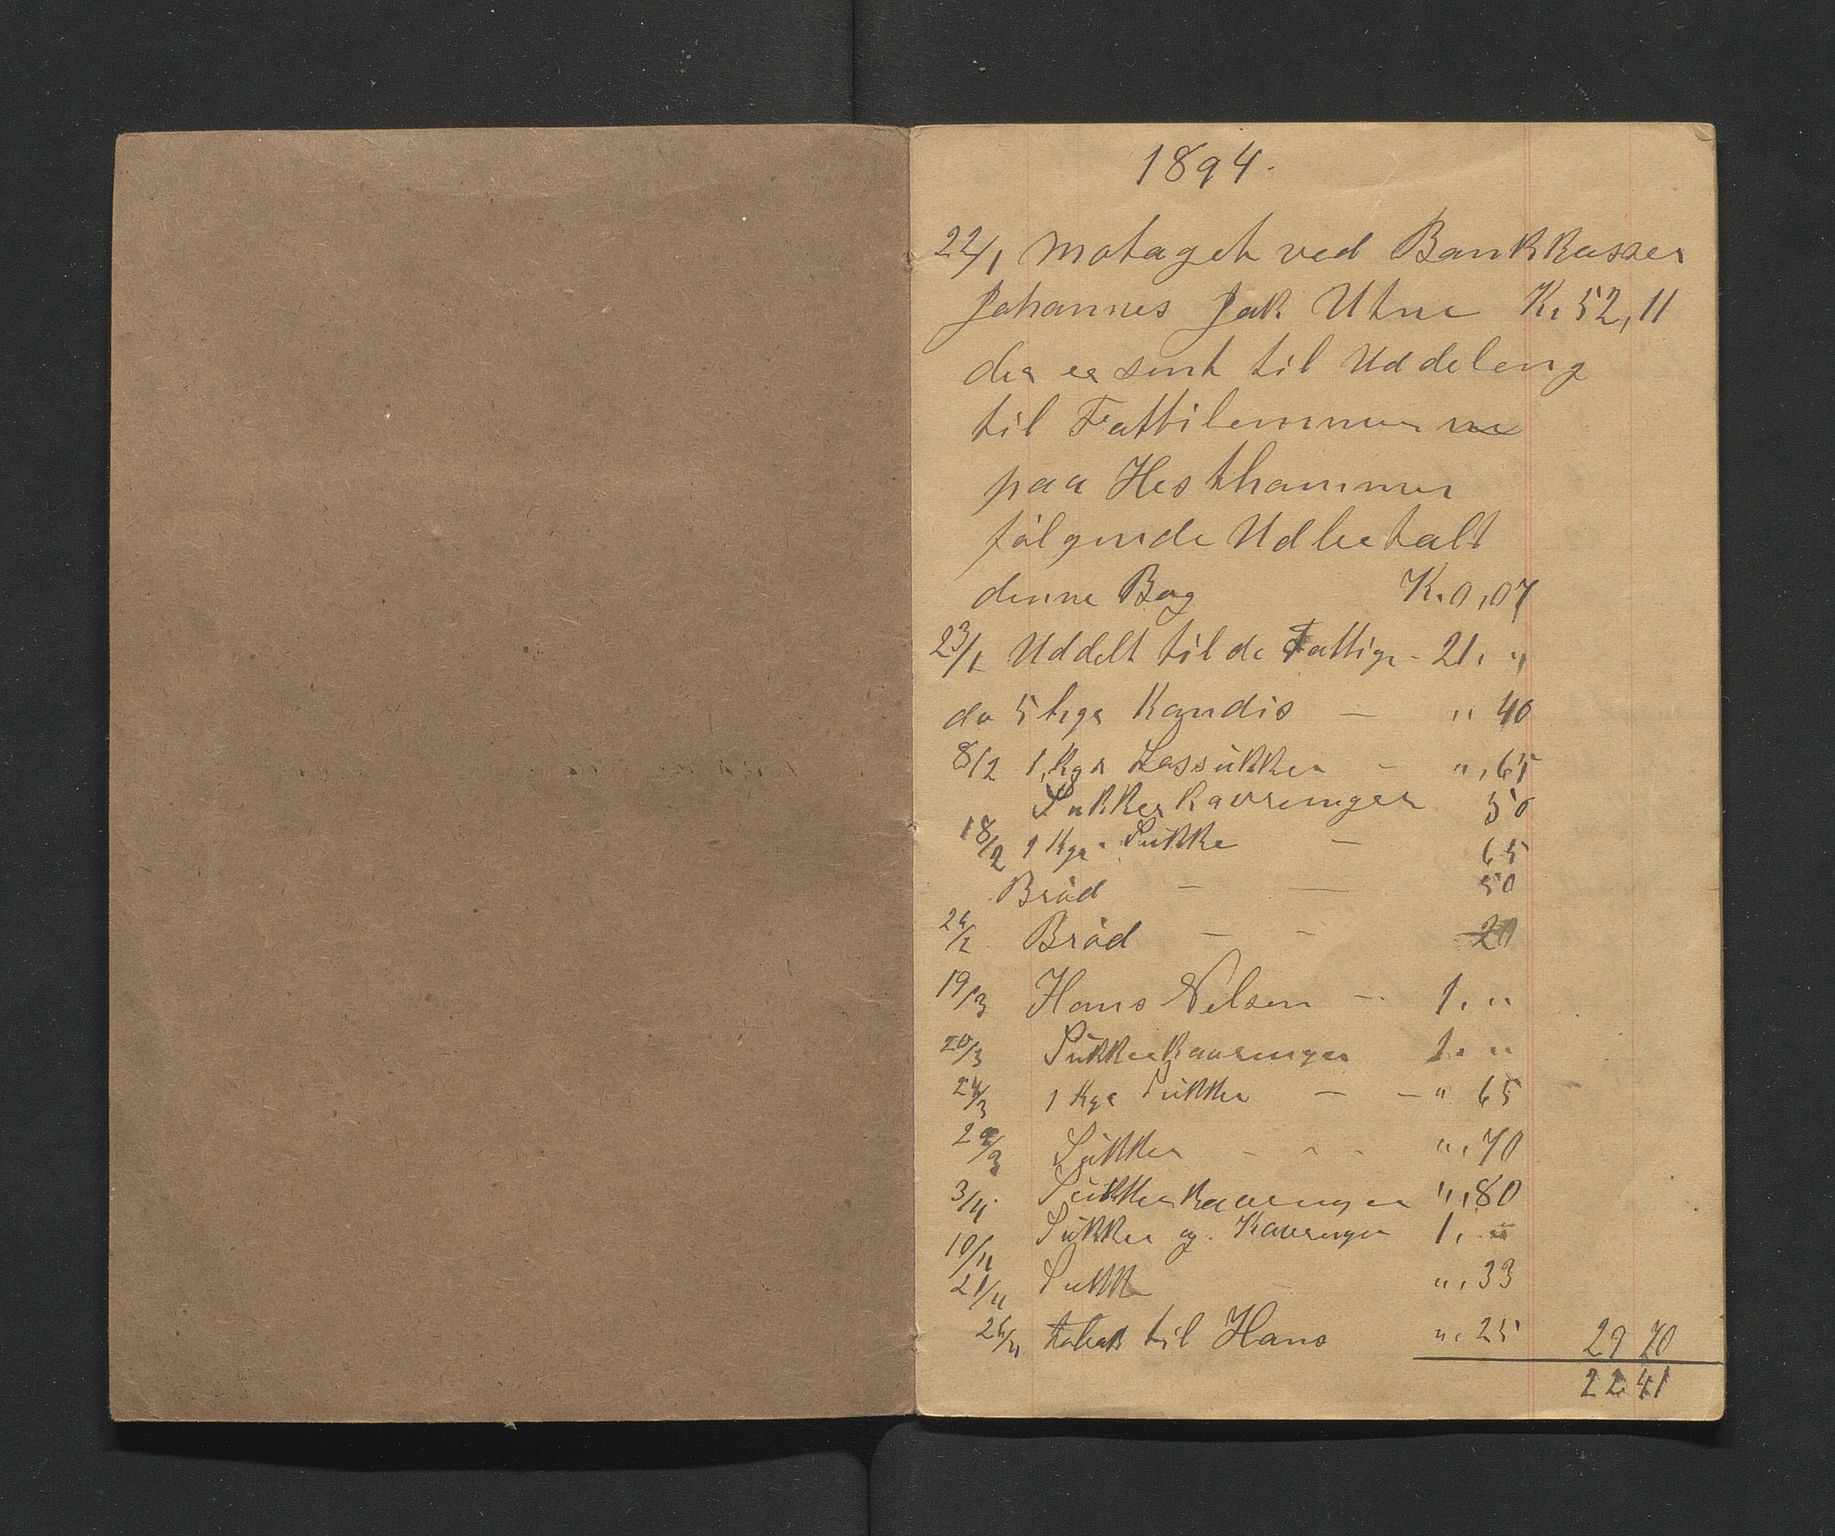 1894.
22/1 Motaget ved Bankkasser
Johannes Jak Utne K. 52,11
der er sent til Uddeleng
til Fattilemmer
paa Hesthammer
følgende Udbetalt
denne Bog K. 0,07
23/1 Uddelt til de Fattige - 21, "
do 5 hgr Kandis — " 40
8/2 1, Kgr Lassukker - ",65
Sukker Kavringer 50
18/2 1 Kgr. Sukke — 65
Brød - — 50
26/2 Brød - - 20
19/3 Hans Nelsen - 1. "
20/3 Sukkerkavringer 1. "
24/3 1 Kgr Sukker - - " 65
29/3 Sukker - - - ", 70
3/4 Sukkerkavringer ",80
10/4 Sukker og. Kavringer 1, "
21/4 Sukk ", 33
26/4 tobak til Hans ", 25 29 70
22 41